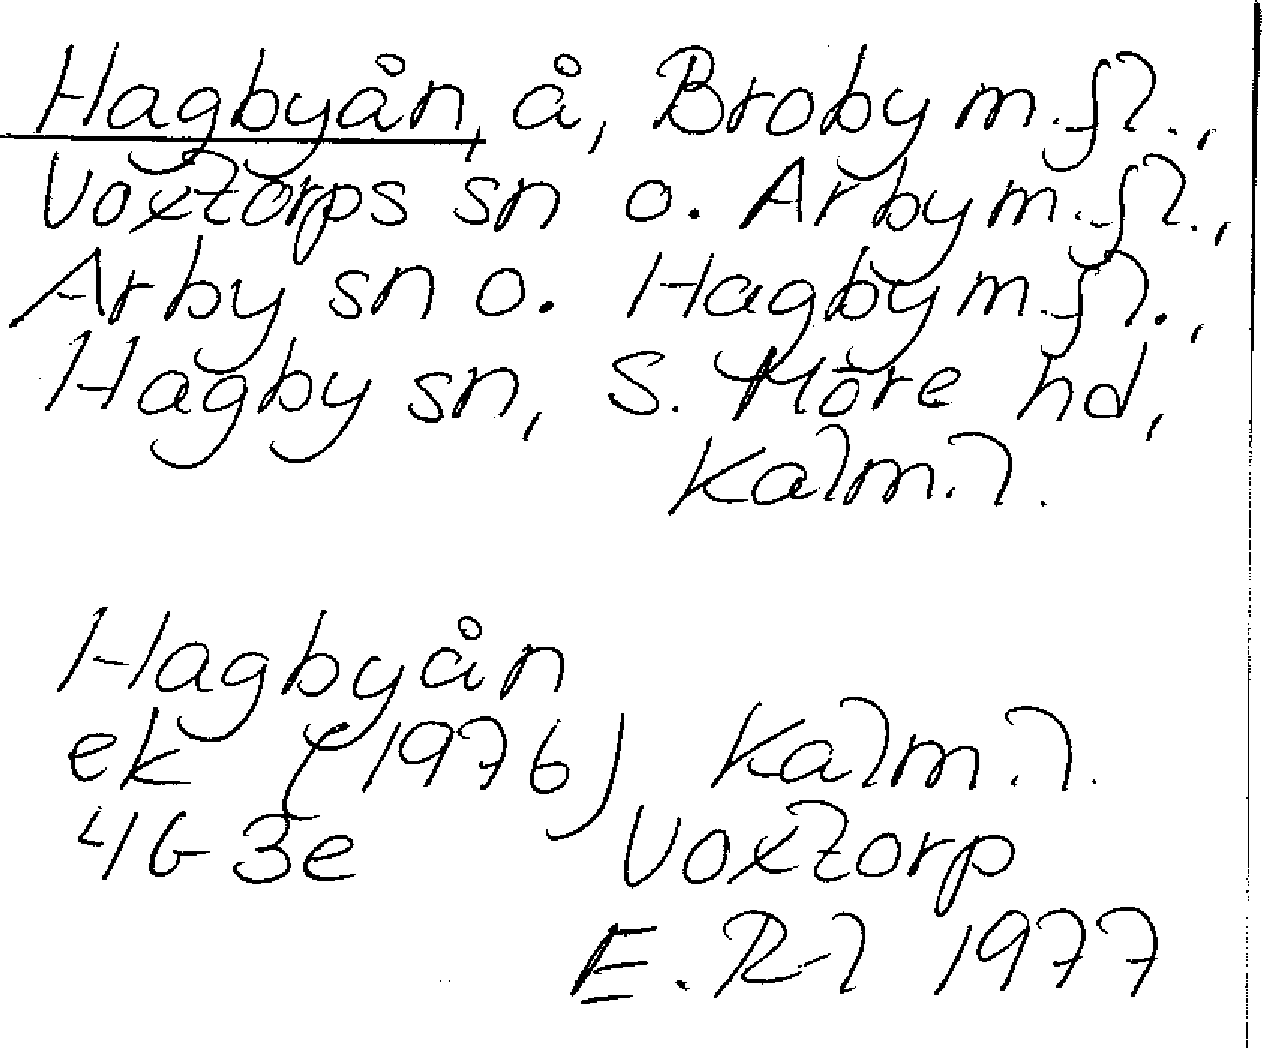 Hagbyån, å, Broby m.fl.,
Voxtorps sn o. Arby m.fl.,
Arby sn o. Hagby m.fl.,
Hagby sn, S. Möre hd,
Kalm.l.
Hagbyån
ek (1976) Kalm.l.
4G 3e Voxtorp
E. R-l 1977